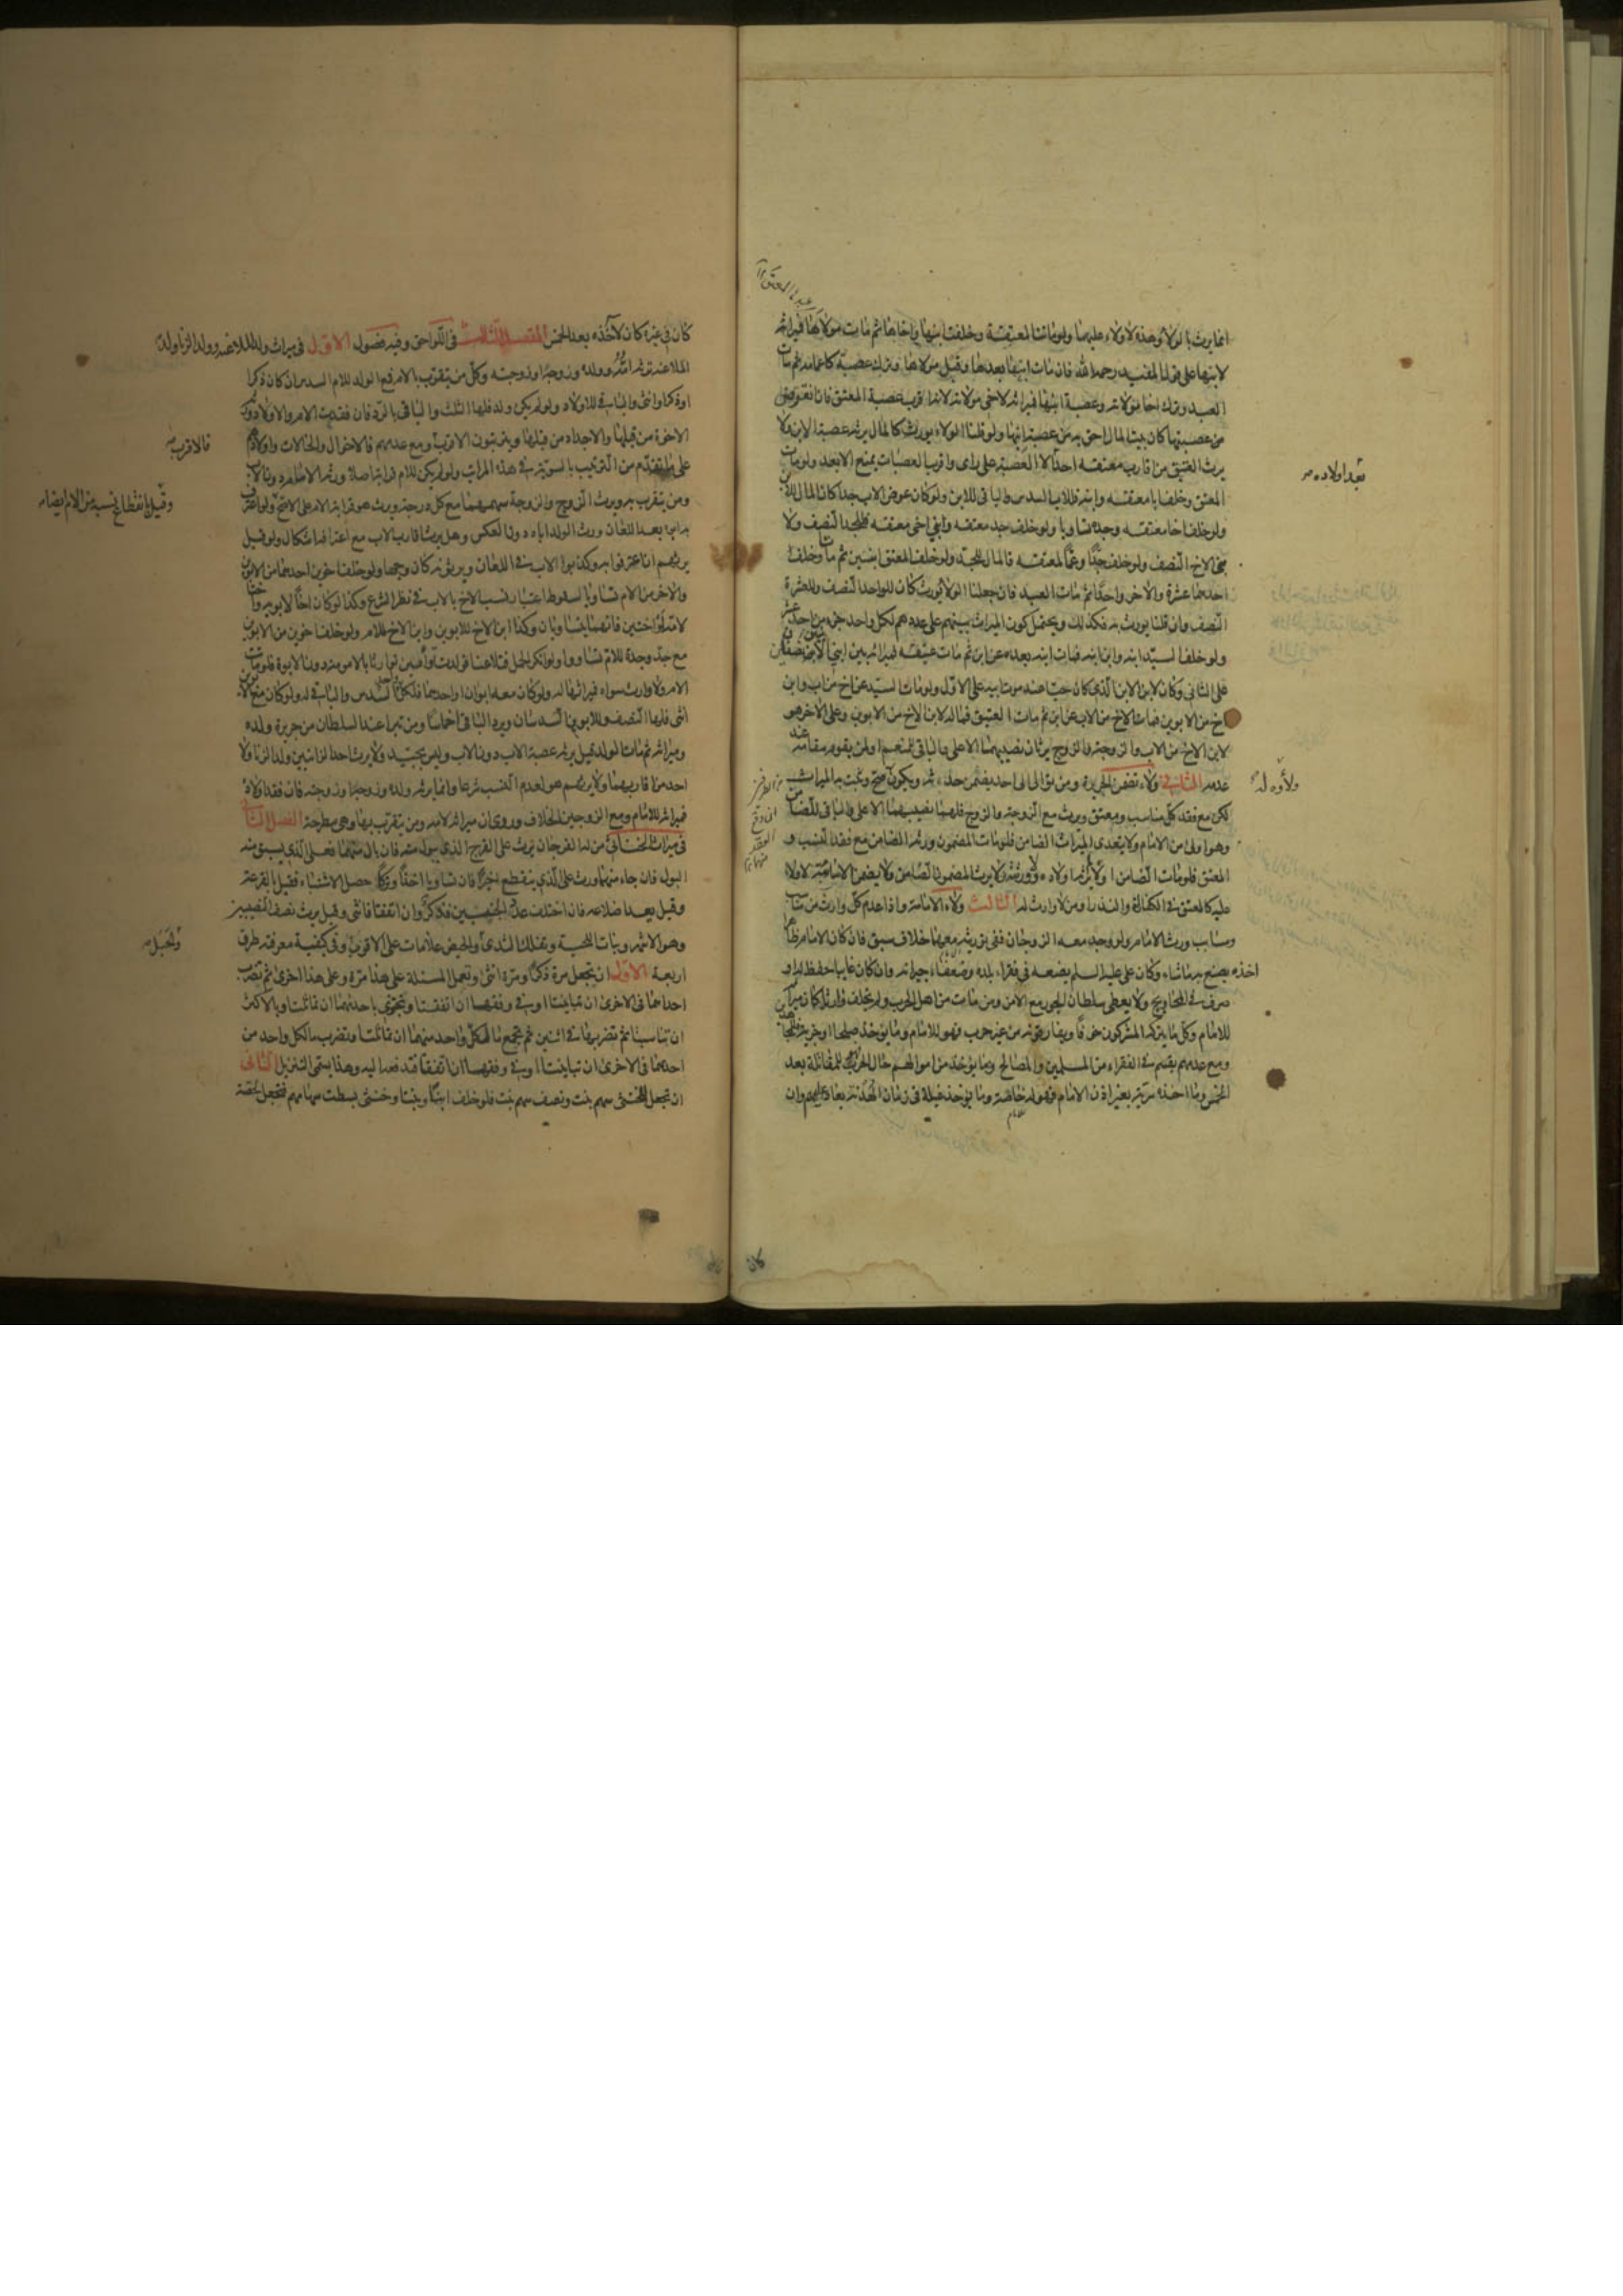 انما يرث بالولاء وهذه لا ولاء عليها ولو ماتت المعتقة وخلفت ابنها واخاها ثم مات مولاها فميراثه
لابنها على قول المفيد رحمه الله فان مات ابنها بعدها وقبل مولاها وترك عصبة كاعمامه ثم مات
العبد وترك اخا مولاته وعصبة ابنها فميراثه لاخي مولاته لانه اقرب عصبة المعتق فان انقرض
من عصبتها كان بيت المال احق به من عصبة ابنها ولو قلنا الولاء يورث كالمال يرثه عصبة الابن ولا
يرث العتيق من اقارب معتقه احد الا العصبة على راى واقرب العصبات يمنع الابعد ولو مات
المعتق وخلف ابا معتقه وابنه فللاب السدس والباقى للابن ولو كان عوض الاب جد كان المال للابن
ولو خلف اخا معتقه وجده تساويا ولو خلف جد معتقه وابنى اخى معتقه فللجد النصف ولا
بنى الاخ النصف ولو خلف جدا وعما لمعتقه فالمال للجد ولو خلف المعتق ابنين ثم مات وخلف
احدهما عشرة والاخر واحدا ثم مات العبد فان جعلنا الولاء يورث كان للواحد النصف وللعشرة
النصف وان قلنا يورث به فكذلك ويحتمل كون الميراث بينهم على عددهم لكل واحد جزء من احد عشر
ولو خلف السيد ابنه وابن ابنه فمات ابنه بعده عن ابن ثم مات عتيقه فميراثه بين ابنى الابن نصفان
على الثانى وكان لابن الابن الذى كان حيا عند موت ابيه على الاول ولو مات السيد عن اخ من اب وابن
اخ من الابوين فمات الاخ من الاب عن ابن ثم مات العتيق فماله لابن الاخ من الابوين وعلى الاخر هو
لابن الاخ من الاب والزوجة والزوج يرثان نصيبهما الاعلى والباقى للمنعم او لمن يقوم مقامه عند
عدمه الثانى ولاء تضمن الجريرة ومن توالى الى احد يضمن حدثه ويكون ولاؤه له صح ويثبت به الميراث
لكن مع فقد كل مناسب ومعتق ويرث مع الزوجة والزوج فلهما نصيبهما الاعلى والباقى للضامن
وهو اولى من الامام ولا يتعدى الميراث الضامن فلو مات المضمون ورثه الضامن مع فقد النسب و
المعتق فلو مات الضامن اولا لم يرثه اولاده ولا ورثته ولا يرث المضمون الضامن ولا يضمن الا سائبة لا ولاء
عليه كالمعتق فى الكفارة والنذر او من لا وارث له الثالث ولاء الامامة واذا عدم كل وارث من مناسب
ومسابب ورث الامام ولو وجد معه الزوجان ففى توريثه معهما خلاف سبق فان كان الامام ظاهرا
اخذه يصنع به ما شاء وكان على عليه السلم يضعه فى فقراء بلده وضعفاء جيرانه وان كان غايبا حفظ له او
صرف فى المحاويج ولا يعطى سلطان الجور مع الامن ومن مات من اهل الحرب ولم يخلف وارثا كان ميراثه
للامام وكل ما يتركه المشركون خوفا ويفارقونه من غير حرب فهو للامام وما يؤخذ صلحا او جزية للمجاهدين
ومع عدمهم يقسم فى الفقراء من المسلمين والمصالح وما يؤخذ من اموالهم حال الحرب للمقاتلة بعد
الخمس وما اخذه سرية بغير اذن الامام فهو له خاصة وما يؤخذ غيلة فى زمان الهدنة يعاد عليهم وان
بعد اولاده
ولاؤه له
كان
كان فى غيره كان لآخذه بعد الخمس المقصد الثالث فى اللواحق وفيه فصول الاول فى ميراث ولد الملاعنه وولد الزنا ولد
الملاعنة ترثه امه وولده وزوجها وزوجته وكل من يتقرب بالام فمع الولد للام السدس ان كان ذكرا
او ذكرا وانثى والباقى للاولاد ولو لم يكن ولد فلها الثلث والباقى بالرد فان فقدت الام والاولاد ورثه
الاخوة من قبلها والاجداد من قبلها ويترتبون الاقرب ومع عدمهم فالاخوال والخالات واولادهم
على ما تقدم من الترتيب بالسوية فى هذه المراتب ولو لم يكن للام قرابة اصلا ورثه الامام دون الاب
ومن يتقرب به ويرث الزوج والزوجة سهمهما مع كل درجة ويرث هو قرابة الام على الاصح ولو اعترف
به ابوه بعد اللعان ورث الولد اباه دون العكس وهل يرث اقارب الاب مع اعترافه اشكال ولو قيل
يرثهم ان اعترفوا به وكذبوا الاب فى اللعان ويرثونه كان وجها ولو خلف اخوين احدهما من الابوين
والاخر من الام تساويا لسقوط اعتبار نسب الاخ بالاب فى نظر الشرع وكذا لو كان اخا لابويه واختا
لامه او اختين فانهما يتساويان وكذا ابن الاخ للابوين وابن الاخ للام ولو خلف اخوين من الابوين
مع جد وجدة للام تساووا ولو انكر الحمل فتلاعنا فولدت توأمين توارثا بالامومة دون الابوة فلو ماتت
الام ولا وارث سواه فميراثها له ولو كان معه ابوان او احدهما فلكل السدس والباقى له ولو كان مع الابوين
انثى فلها النصف وللابوين السدسان ويرد الباقى اخماسا ومن تبرا عند السلطان من جريرة ولده
وميراثه ثم مات الولد قيل يرثه عصبة الاب دون الاب وليس بجيد ولا يرث احد الزانيين ولد الزنا ولا
احد من اقاربهما ولا يرثهم هو لعدم النسب شرعا وانما يرثه ولده وزوجها وزوجته فان فقد اولاده
فميراثه للامام ومع الزوجين الخلاف وروى ان ميراثه لامه ومن يتقرب بها وهى مطرحة الفصل الثانى
فى ميراث الخنثى من له الفرجان يرث على الفرج الذى يبول منه فان بال منهما فعلى الذى يسبق منه
البول فان جاء منهما ورث على الذى ينقطع اخيرا فان تساويا اخذا وتركا حصل الاشتباه فقيل بالقرعة
وقيل بعد اضلاعه فان اختلف عدد الجنبين فذكر وان اتفقا فانثى وقيل يرث نصف النصيبين
وهو الاشهر ونبات اللحية وتفلك الثدى والحيض علامات على الاقوى وفى كيفية معرفته طرق
اربعة الاول ان تجعل مرة ذكرا ومرة انثى وتعمل المسئلة على هذا مرة وعلى هذا اخرى ثم تضرب
احداهما فى الاخرى ان تباينتا او فى وفقها ان اتفقتا وتجتزى باحداهما ان تماثلتا وبالاكثر
ان تناسبتا ثم تضربها فى اثنين ثم تجمع ما لكل واحد منهما ان تماثلتا وتضرب ما لكل واحد من
احداهما فى الاخرى ان تباينتا او فى وفقها ان اتفقتا فتدفعه اليه وهذا يسمى التنزيل الثانى
ان تجعل للخنثى سهم بنت ونصف سهم بنت فلو خلف ابنا وبنتا وخنثى بسطت سهامهم فتجعل لحصة
فالاقرب
وقيل بانقطاع نسبه من الام ايضا
والحبل